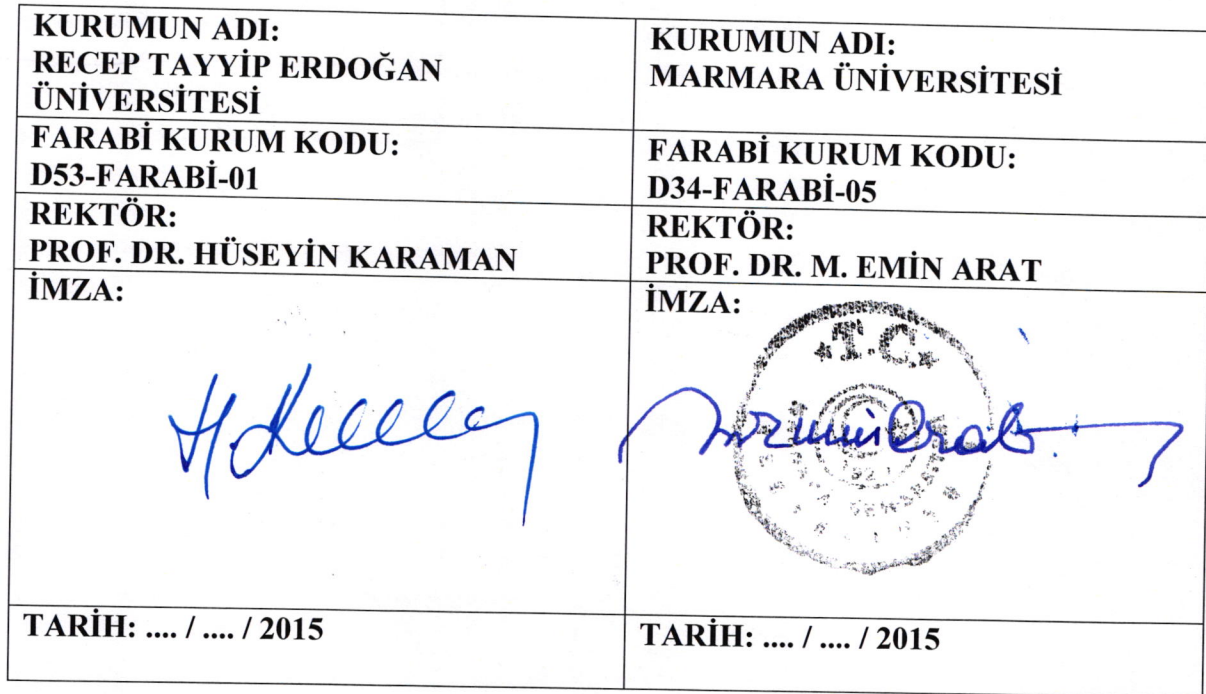 KURUMUN ADI:
RECEP TAYYİP ERDOĞAN
ÜNİVERSİTESİ
KURUMUN ADI:
MARMARA ÜNİVERSİTESİ
FARABİ KURUM KODU:
D53-FARABİ-01
FARABİ KURUM KODU:
D34-FARABİ-05
REKTÖR:
PROF. DR. HÜSEYİN KARAMAN
REKTÖR:
PROF. DR. M. EMİN ARAT
İMZA:
İMZA:
T.C.
TARİH: .... / .... / 2015
TARİH: .... / .... / 2015